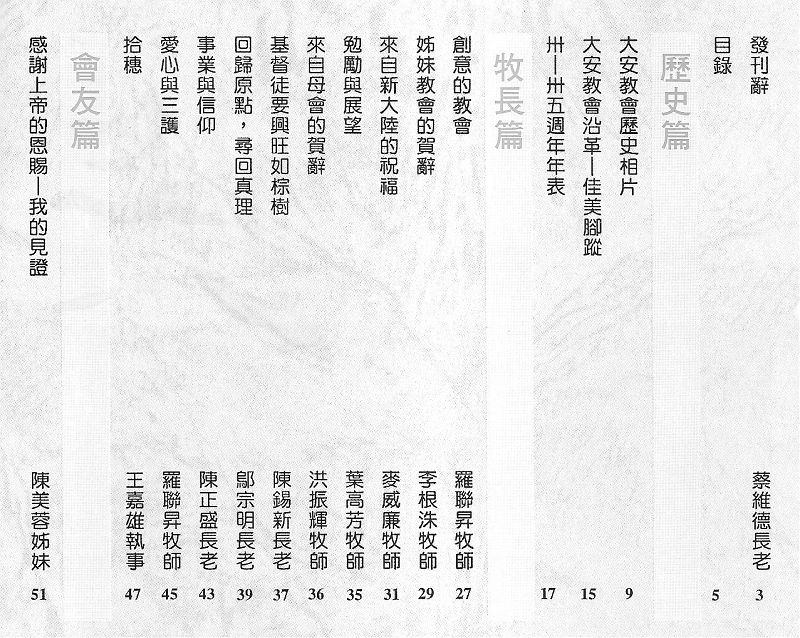 發刊辭 蔡維德長老 3
目錄 5
歷史篇
大安教會歷史相片 9
大安教會沿革—佳美腳蹤 15
卅—卅五週年年表 17
牧長篇
創意的教會 羅聯昇牧師 27
姊妹教會的賀辭 李根洙牧師 29
來自新大陸的祝福 麥威廉牧師 31
勉勵與展望 葉高芳牧師 35
來自母會的賀辭 洪振輝牧師 36
基督徒要興旺如棕樹 陳錫新長老 37
回歸原點，尋回真理 鄔宗明長老 39
事業與信仰 陳正盛長老 43
愛心與三護 羅聯昇牧師 45
拾穗 王嘉雄執事 47
會友篇
感謝上帝的恩賜—我的見證 陳美蓉姊妹 51